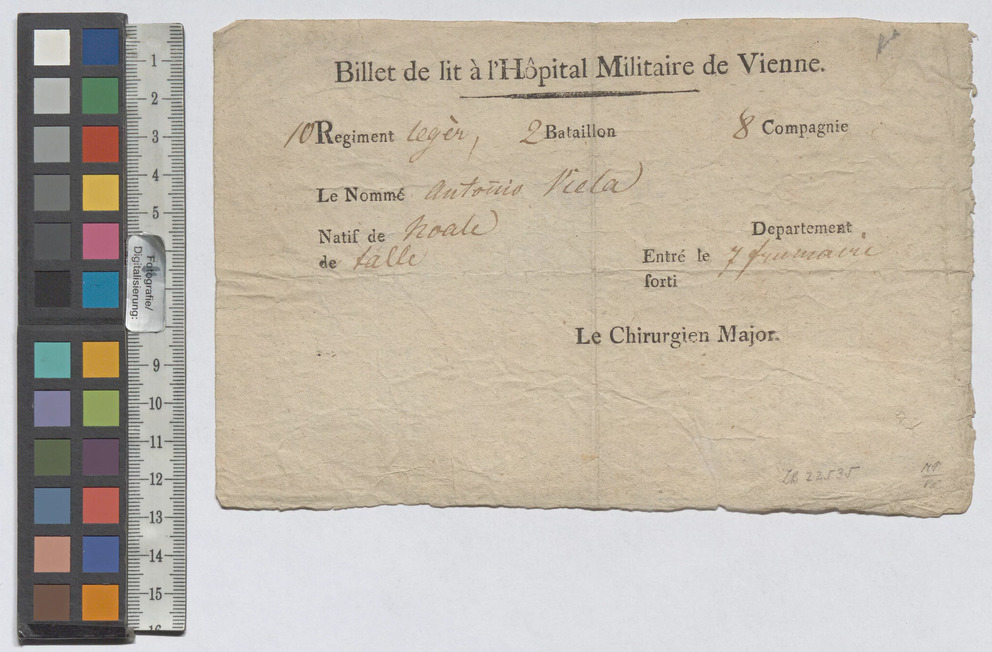 Billet de lit à l'Hôpital Militaire de Vienne.
10 Regiment legèr, 2 Bataillon 8 Compagnie
Le Nommé Antonio Viela
Natif de Noale Departement
de talle Entré le 7 frumairè
sorti
Le Chirurgien Major.
Fotografie/
Digitalisierung:
1
2
3
4
5
9
10
11
12
13
14
15
16